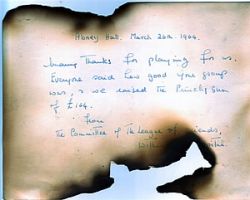 Abney Hall. March 26th. 1964.
Many Thanks for playing for us.
Everyone said how good your group
was, & we raised the Princely Sum
of £164.
from
The Committee of The League of Friends,